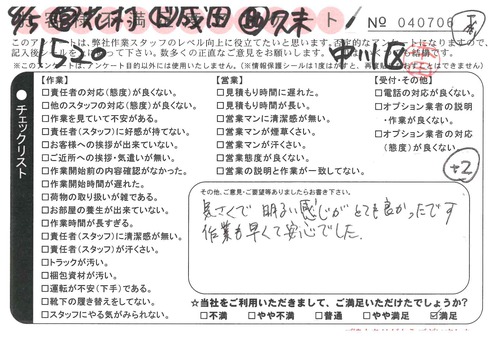 No 040706
このアンケートは、弊社作業スタッフのレベル向上に役立てたいと思います。否定的なアンケートになりますので、
記入後シールを
1520
中川区
チェックリスト
【作業】
□責任者の対応（態度）が良くない。
□他のスタッフの対応（態度）が良くない。
□作業を見ていて不安がある。
□責任者（スタッフ）に好感が持てない。
□お客様への挨拶が出来ていない。
□ご近所への挨拶・気遣いが無い。
□作業開始前の内容確認がなかった。
□作業開始時間が遅れた。
□荷物の取り扱いが雑である。
□お部屋の養生が出来ていない。
□作業時間が長すぎる。
□責任者（スタッフ）に清潔感が無い。
□責任者（スタッフ）が汗くさい。
□トラックが汚い。
□梱包資材が汚い。
□運転が不安（下手）である。
□靴下の履き替えをしてない。
□スタッフにやる気がみられない。
【営業】
□見積もり時間に遅れた。
□見積もり時間が長い。
□営業マンに清潔感が無い。
□営業マンが煙草くさい。
□営業マンが汗くさい。
□営業態度が良くない。
□営業の説明と作業が一致してない。
【受付・その他】
□電話の対応が良くない。
□オプション業者の説明
・作業が良くない。
□オプション業者の対応
（態度）が良くない。
+2
その他、ご意見・ご要望等ありましたらお書き下さい。
気さくで 明るい感じがとても良かったです
作業も早くて安心でした。
☆当社をご利用いただきまして、ご満足いただけたでしょうか？
□不満 □やや不満 □普通 □やや満足 ☑満足